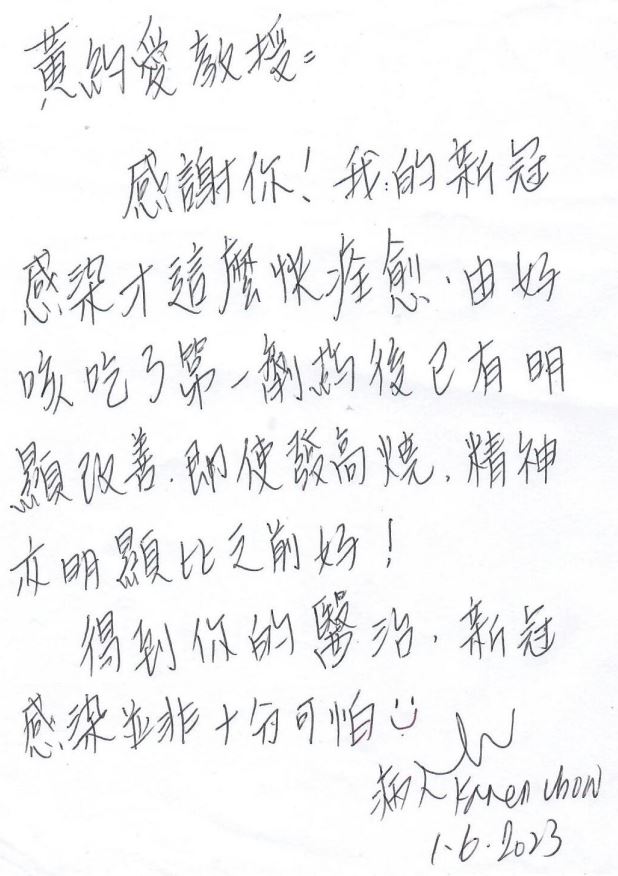 黃鈞愛教授:
感謝你!我的新冠
感染才這麼快痊愈.由好
咳吃了第一劑药後已有明
顯改善.即使發高燒,精神
亦明顯比之前好!
得到你的醫治,新冠
感染並非十分可怕
病人Karen Chow
1.6.2023